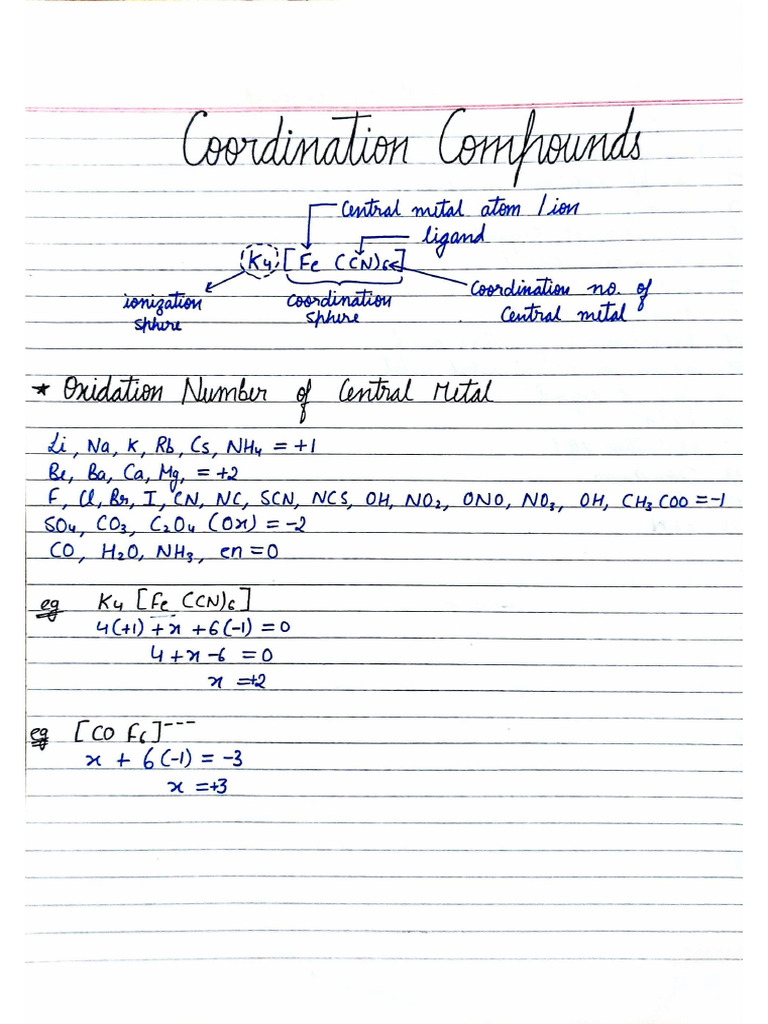 Coordination Compounds
central metal atom / ion
ligand
K4 [Fe (CN)6]
ionization sphere
coordination sphere
Coordination no. of Central metal
* Oxidation Number of Central Metal
Li, Na, K, Rb, Cs, NH4 = +1
Be, Ba, Ca, Mg, = +2
F, Cl, Br, I, CN, NC, SCN, NCS, OH, NO2, ONO, NO3, OH, CH3COO = -1
SO4, CO3, C2O4 (Ox) = -2
CO, H2O, NH3, en = 0
eg K4 [Fe (CN)6]
4(+1) + x + 6(-1) = 0
4 + x - 6 = 0
x = +2
eg [CO F6]---
x + 6(-1) = -3
x = +3